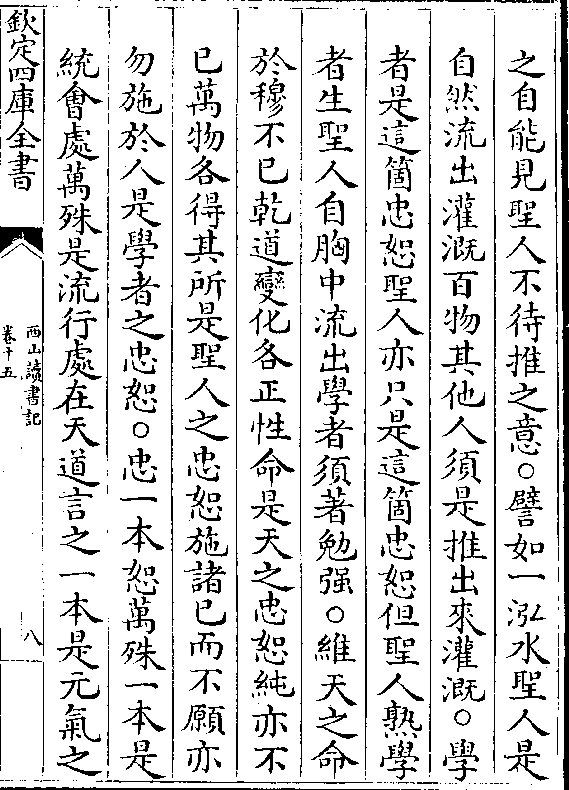 之自能見聖人不待推之意○譬如一泓水聖人是
自然流出灌溉百物其他人須是推出來灌溉○學
者是這箇忠恕聖人亦只是這箇忠恕但聖人熟學
者生聖人自胸中流出學者須著勉强○維天之命
於穆不已乾道變化各正性命是天之忠恕純亦不
已萬物各得其所是聖人之忠恕施諸己而不願亦
勿施於人是學者之忠恕○忠一本恕萬殊一本是
統會處萬殊是流行處在天道言之一本是元氣之
欽定四庫全書
西山讀書記
卷十五
八